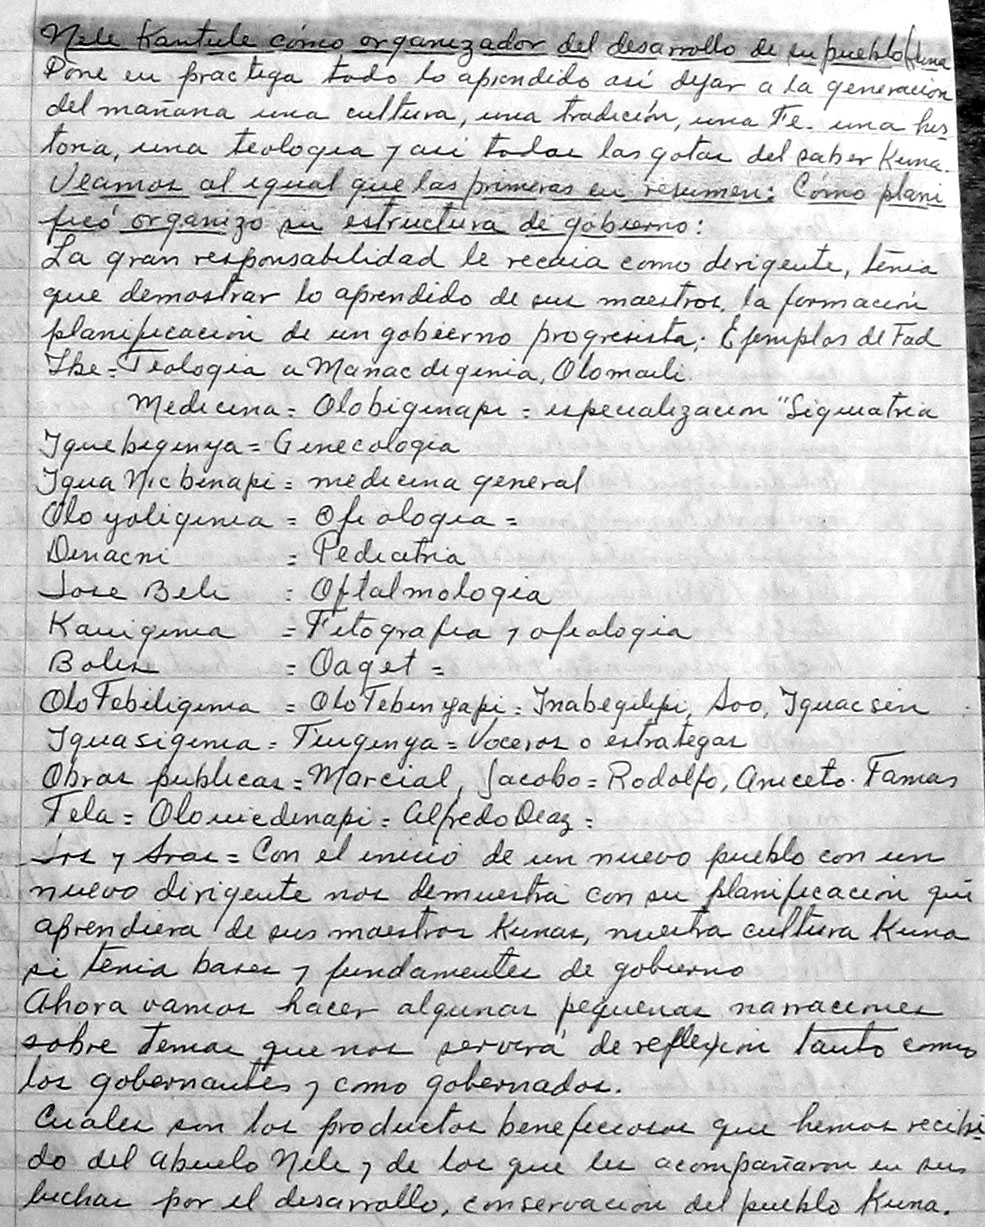 Nele Kantule cómo organizador del desarrollo de su pueblo Kuna
Pone en practiga todo lo aprendido así dejar a la generación
del mañana una cultura, una tradición, una Fe. una his
toria, una teologia y asi todas las gotas del saber Kuna.
Veamos al igual que las primeras en resumen: Cómo plani
ficó organizo su estructura de gobierno:
La gran responsabilidad le recaia como dirigente, tenia
que demostrar lo aprendido de sus maestros, la formación
planificación de un gobierno progresista; Ejemplos de Fad
Ibe = Teologia a Manacdiginia, Olomaili.
Medicina = Olobiginapi = especializacion "Siquiatria
Iguebiginya = Ginecologia
Igua Nicbinapi = medicina general
Oloyoliginia = Ofiologia =
Dinacni = Pediatria
Jose Beli = Oftalmologia
Kaniginia = Fitografia y ofiologia
Boliz = Oaget =
OloTebiliginia = OloTebinyapi = Inabegilipi, Soo, Iguacsin
Iguasiginia = Tinginya = Voceros o estrategas
Obras publicas = Marcial, Jacobo = Rodolfo, Aniceto. Famas
Tela = Olonicdinapi = Alfredo Diaz =
= Con el inicio de un nuevo pueblo con un
nuevo dirigente nos demuestra con su planificación que
aprendiera de sus maestros Kunas, nuestra cultura Kuna
si tenia bases y fundamentes de gobierno
Ahora vamos hacer algunas pequeñas narraciones
sobre temas que nos servirá de reflexión tanto como
los gobernantes y como gobernados.
Cuales son los productos beneficiosos que hemos recibi-
do del abuelo Nele y de los que les acompañaron en sus
luchas por el desarrollo, conservación del pueblo Kuna.